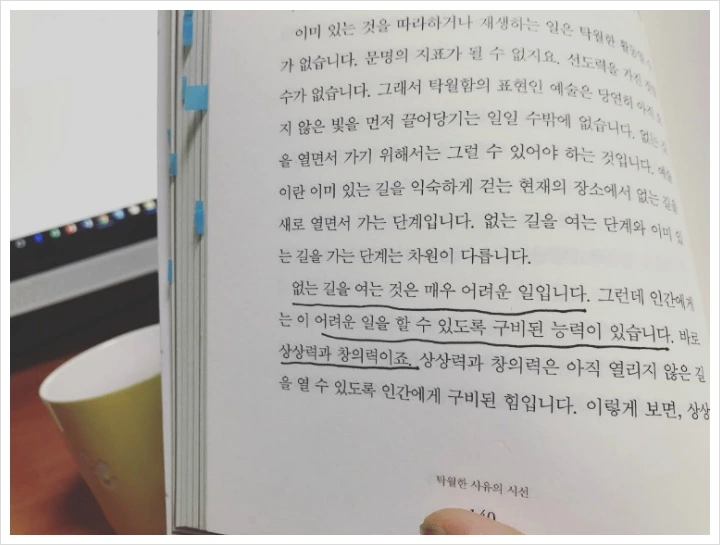 이미 있는 것을 따라하거나 재생하는 일은 탁월한
가 없습니다. 문명의 지표가 될 수 없지요. 선도력을 가진
수가 없습니다. 그래서 탁월함의 표현인 예술은 당연히
지 않은 빛을 먼저 끌어당기는 일일 수밖에 없습니다. 없는
을 열면서 가기 위해서는 그럴 수 있어야 하는 것입니다.
이란 이미 있는 길을 익숙하게 걷는 현재의 장소에서 없는 길을
새로 열면서 가는 단계입니다. 없는 길을 여는 단계와 이미 있
는 길을 가는 단계는 차원이 다릅니다.
없는 길을 여는 것은 매우 어려운 일입니다. 그런데 인간에게
는 이 어려운 일을 할 수 있도록 구비된 능력이 있습니다. 바로
상상력과 창의력이죠. 상상력과 창의력은 아직 열리지 않은 길
을 열 수 있도록 인간에게 구비된 힘입니다. 이렇게 보면, 상상
탁월한 사유의 시선